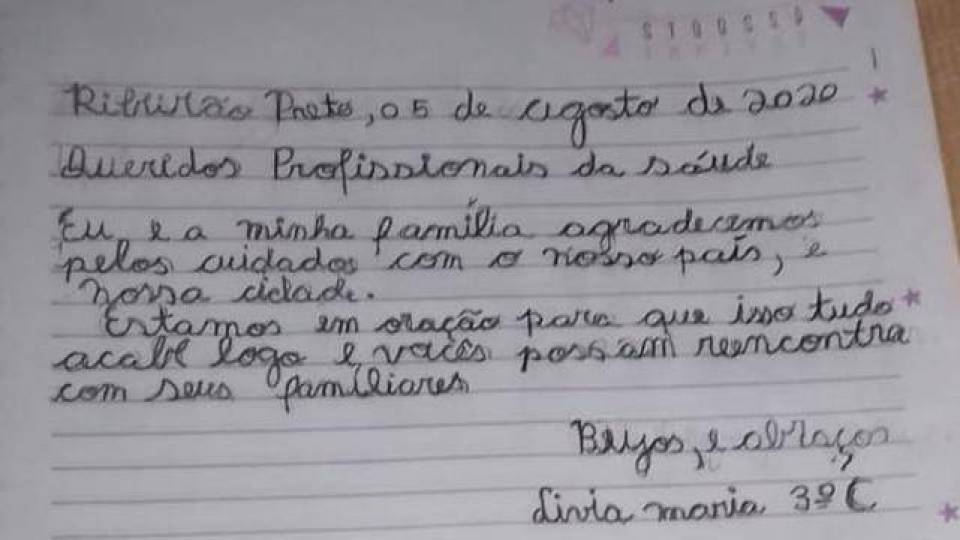 Ribeirão Preto, 05 de agosto de 2020
Queridos Profissionais da saúde
Eu e a minha família agradecemos
pelos cuidados com o nosso país, e
nossa cidade.
Estamos em oração para que isso tudo
acabe logo e vocês possam reencontra
com seus familiares
Beijos, e abraços
Livia maria 3º C